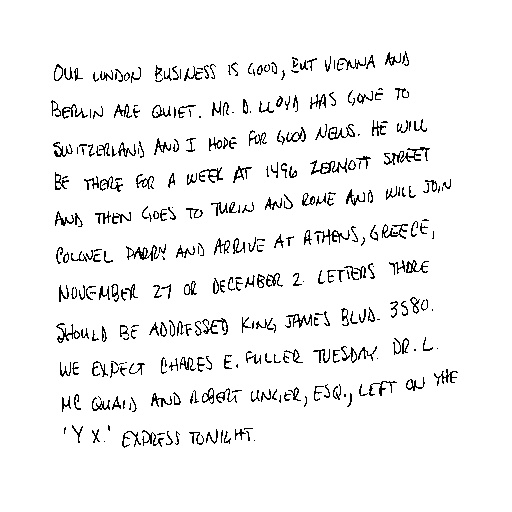 OUR LONDON BUSINESS IS GOOD, BUT VIENNA AND
BERLIN ARE QUIET. MR. D. LLOYD HAS GONE TO
SWITZERLAND AND I HOPE FOR GOOD NEWS. HE WILL
BE THERE FOR A WEEK AT 1496 ZERMOTT STREET
AND THEN GOES TO TURIN AND ROME AND WILL JOIN
COLONEL PARRY AND ARRIVE AT ATHENS, GREECE,
NOVEMBER 27 OR DECEMBER 2. LETTERS THERE
SHOULD BE ADDRESSED KING JAMES BLVD. 3580.
WE EXPECT CHARES E. FULLER TUESDAY. DR. L.
MC QUAID AND ROBERT UNGER, ESQ., LEFT ON THE
'Y X.' EXPRESS TONIGHT.